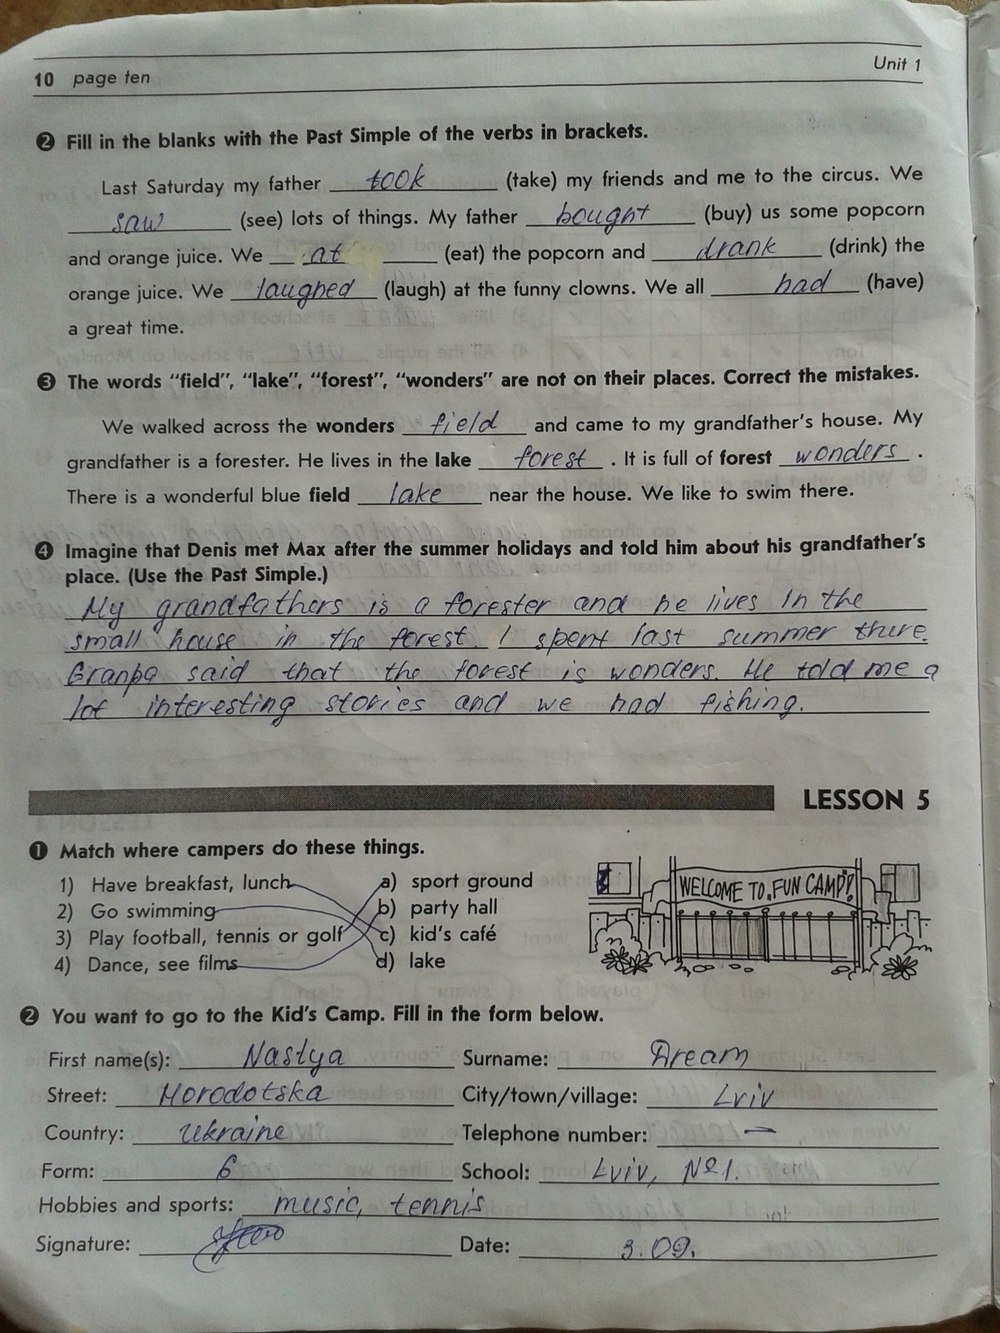 10 page ten
Unit 1
2 Fill in the blanks with the Past Simple of the verbs in brackets.
Last Saturday my father took (take) my friends and me to the circus. We
saw (see) lots of things. My father bought (buy) us some popcorn
and orange juice. We at (eat) the popcorn and drank (drink) the
orange juice. We laughed (laugh) at the funny clowns. We all had (have)
a great time.
3 The words “field”, “lake”, “forest”, “wonders” are not on their places. Correct the mistakes.
We walked across the wonders field and came to my grandfather’s house. My
grandfather is a forester. He lives in the lake forest. It is full of forest wonders.
There is a wonderful blue field lake near the house. We like to swim there.
4 Imagine that Denis met Max after the summer holidays and told him about his grandfather’s
place. (Use the Past Simple.)
My grandfathers is a forester and he lives In the
small house in the forest. I spent last summer there.
Granpa said that the forest is wonders. He told me a
lot interesting stories and we had fishing.
LESSON 5
1 Match where campers do these things.
1) Have breakfast, lunch a) sport ground
2) Go swimming b) party hall
3) Play football, tennis or golf c) kid’s café
4) Dance, see films d) lake
WELCOME TO FUN CAMP!
2 You want to go to the Kid’s Camp. Fill in the form below.
First name(s): Nastya Surname: Dream
Street: Horodotska City/town/village: Lviv
Country: Ukraine Telephone number: —
Form: 6 School: Lviv, №1.
Hobbies and sports: music, tennis
Signature: Date: 3.09.